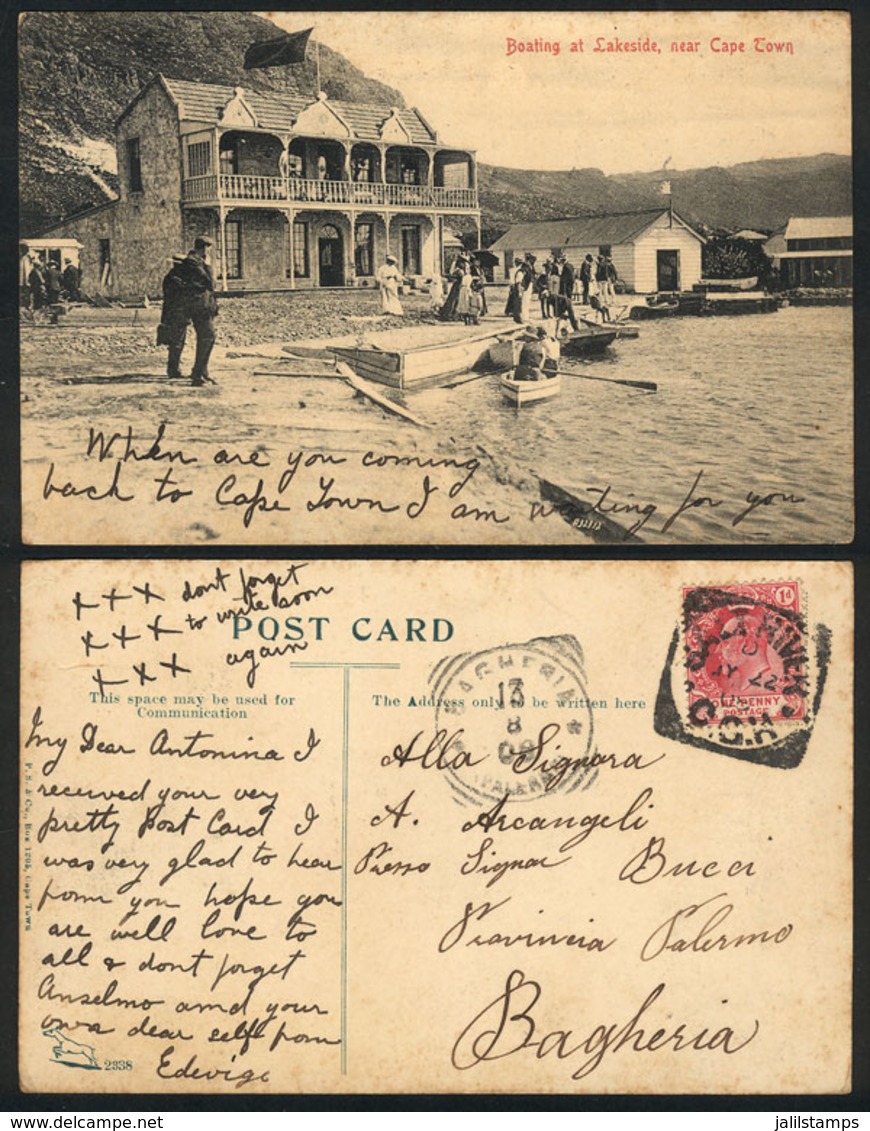 Boating at Lakeside, near Cape Town
When are you coming
back to Cape Town I am waiting for you
x x x dont forget
x x x to write soon
x x x again
POST CARD
This space may be used for
Communication
The Address only to be written here
My Dear Antonina I
received your very
pretty Post Card I
was very glad to hear
from you hope you
are well love to
all & dont forget
Anselmo and your
own dear self from
Edevige
2338
P. S. & Co., Box 1298, Cape Town
BAGHERIA
13
8
09
(PALERMO)
1d
ONE PENNY
POSTAGE
SALT RIVER
22
C.G.H
Alla Signora
A. Arcangeli
Presso Signor Bucci
Provincia Palermo
Bagheria
jalilstamps